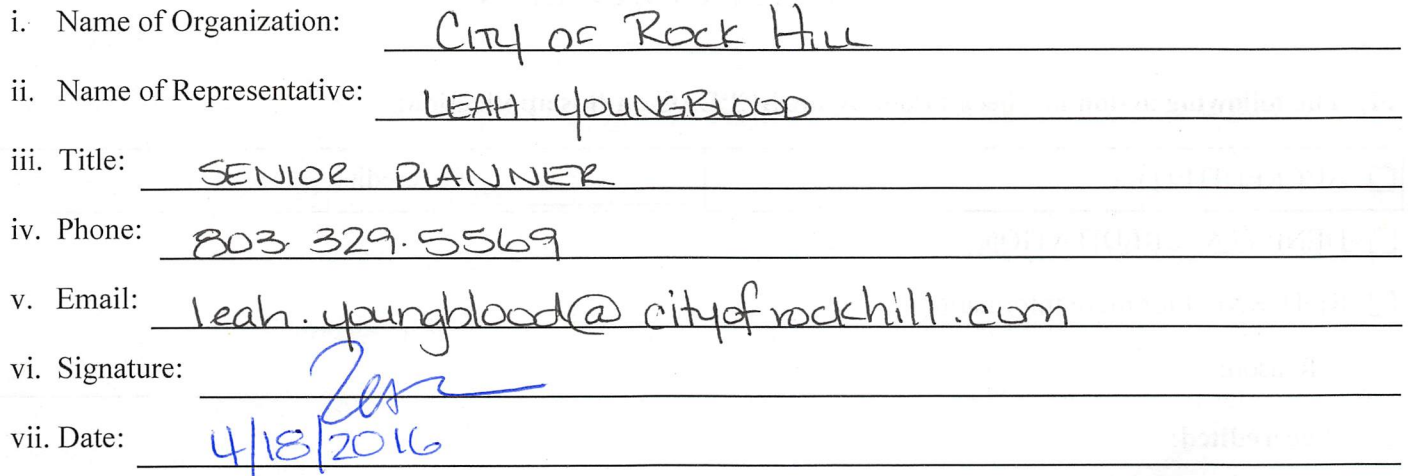 i. Name of Organization: CITY OF ROCK HILL
ii. Name of Representative: LEAH YOUNGBLOOD
iii. Title: SENIOR PLANNER
iv. Phone: 803.329.5569
v. Email: leah.youngblood@cityofrockhill.com
vi. Signature:
vii. Date: 4/18/2016